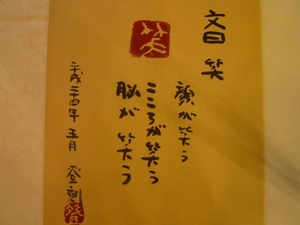 笑
笑
顔が笑う
こころが笑う
脳が笑う
平成二十四年 五月 登